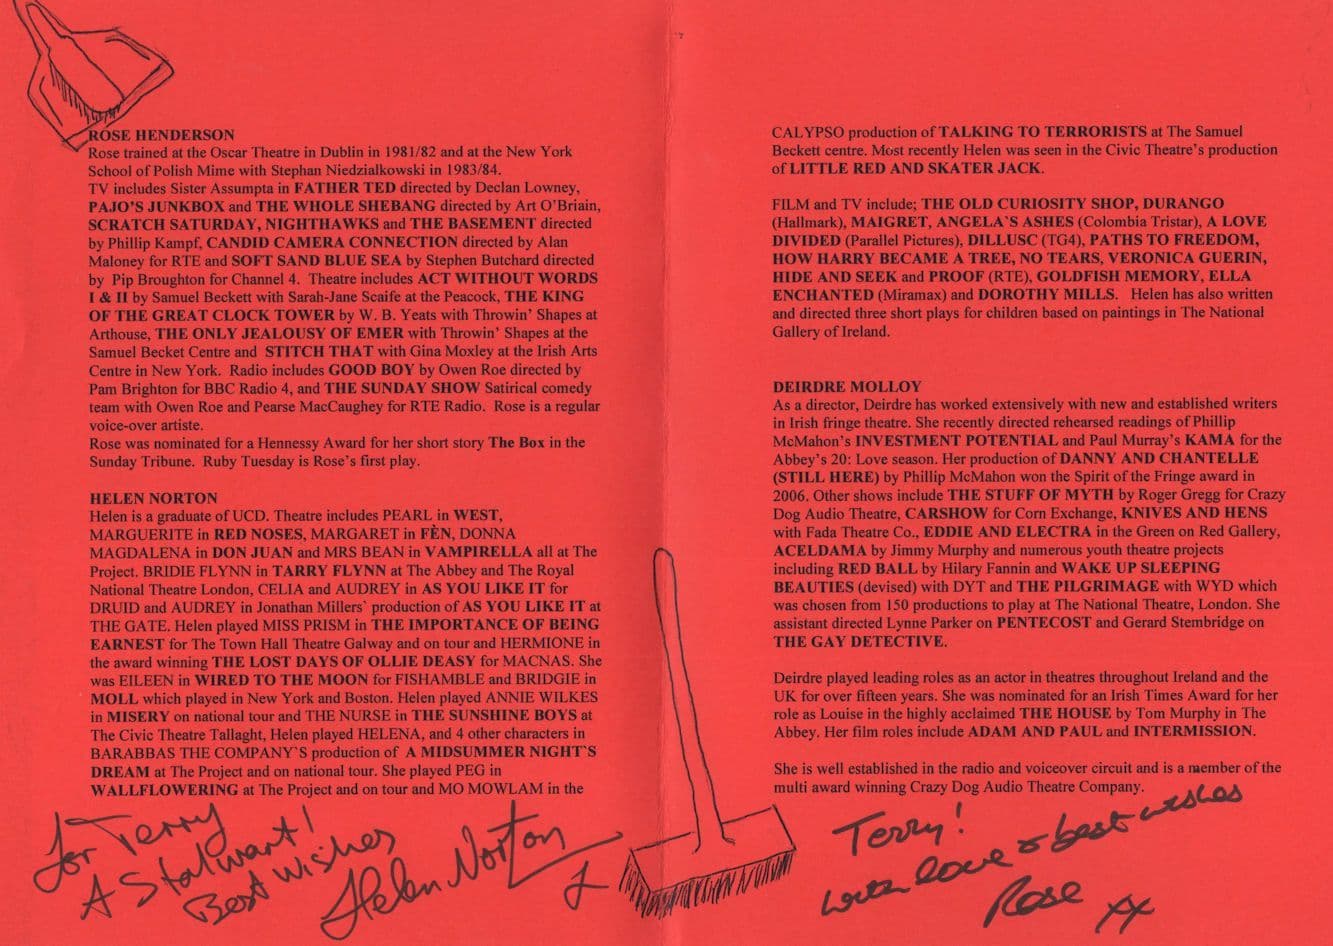 ROSE HENDERSON
Rose trained at the Oscar Theatre in Dublin in 1981/82 and at the New York
School of Polish Mime with Stephan Niedzialkowski in 1983/84.
TV includes Sister Assumpta in FATHER TED directed by Declan Lowney,
PAJO'S JUNKBOX and THE WHOLE SHEBANG directed by Art O'Briain,
SCRATCH SATURDAY, NIGHTHAWKS and THE BASEMENT directed
by Phillip Kampf, CANDID CAMERA CONNECTION directed by Alan
Maloney for RTE and SOFT SAND BLUE SEA by Stephen Butchard directed
by Pip Broughton for Channel 4. Theatre includes ACT WITHOUT WORDS
I & II by Samuel Beckett with Sarah-Jane Scaife at the Peacock, THE KING
OF THE GREAT CLOCK TOWER by W. B. Yeats with Throwin' Shapes at
Arthouse, THE ONLY JEALOUSY OF EMER with Throwin' Shapes at the
Samuel Becket Centre and STITCH THAT with Gina Moxley at the Irish Arts
Centre in New York. Radio includes GOOD BOY by Owen Roe directed by
Pam Brighton for BBC Radio 4, and THE SUNDAY SHOW Satirical comedy
team with Owen Roe and Pearse MacCaughey for RTE Radio. Rose is a regular
voice-over artiste.
Rose was nominated for a Hennessy Award for her short story The Box in the
Sunday Tribune. Ruby Tuesday is Rose's first play.
HELEN NORTON
Helen is a graduate of UCD. Theatre includes PEARL in WEST,
MARGUERITE in RED NOSES, MARGARET in FÈN, DONNA
MAGDALENA in DON JUAN and MRS BEAN in VAMPIRELLA all at The
Project. BRIDIE FLYNN in TARRY FLYNN at The Abbey and The Royal
National Theatre London, CELIA and AUDREY in AS YOU LIKE IT for
DRUID and AUDREY in Jonathan Millers' production of AS YOU LIKE IT at
THE GATE. Helen played MISS PRISM in THE IMPORTANCE OF BEING
EARNEST for The Town Hall Theatre Galway and on tour and HERMIONE in
the award winning THE LOST DAYS OF OLLIE DEASY for MACNAS. She
was EILEEN in WIRED TO THE MOON for FISHAMBLE and BRIDGIE in
MOLL which played in New York and Boston. Helen played ANNIE WILKES
in MISERY on national tour and THE NURSE in THE SUNSHINE BOYS at
The Civic Theatre Tallaght, Helen played HELENA, and 4 other characters in
BARABBAS THE COMPANY`S production of A MIDSUMMER NIGHT`S
DREAM at The Project and on national tour. She played PEG in
WALLFLOWERING at The Project and on tour and MO MOWLAM in the
for Terry
A Stalwart!
Best Wishes
Helen Norton
CALYPSO production of TALKING TO TERRORISTS at The Samuel
Beckett centre. Most recently Helen was seen in the Civic Theatre's production
of LITTLE RED AND SKATER JACK.
FILM and TV include; THE OLD CURIOSITY SHOP, DURANGO
(Hallmark), MAIGRET, ANGELA`S ASHES (Colombia Tristar), A LOVE
DIVIDED (Parallel Pictures), DILLUSC (TG4), PATHS TO FREEDOM,
HOW HARRY BECAME A TREE, NO TEARS, VERONICA GUERIN,
HIDE AND SEEK and PROOF (RTE), GOLDFISH MEMORY, ELLA
ENCHANTED (Miramax) and DOROTHY MILLS. Helen has also written
and directed three short plays for children based on paintings in The National
Gallery of Ireland.
DEIRDRE MOLLOY
As a director, Deirdre has worked extensively with new and established writers
in Irish fringe theatre. She recently directed rehearsed readings of Phillip
McMahon's INVESTMENT POTENTIAL and Paul Murray's KAMA for the
Abbey's 20: Love season. Her production of DANNY AND CHANTELLE
(STILL HERE) by Phillip McMahon won the Spirit of the Fringe award in
2006. Other shows include THE STUFF OF MYTH by Roger Gregg for Crazy
Dog Audio Theatre, CARSHOW for Corn Exchange, KNIVES AND HENS
with Fada Theatre Co., EDDIE AND ELECTRA in the Green on Red Gallery,
ACELDAMA by Jimmy Murphy and numerous youth theatre projects
including RED BALL by Hilary Fannin and WAKE UP SLEEPING
BEAUTIES (devised) with DYT and THE PILGRIMAGE with WYD which
was chosen from 150 productions to play at The National Theatre, London. She
assistant directed Lynne Parker on PENTECOST and Gerard Stembridge on
THE GAY DETECTIVE.
Deirdre played leading roles as an actor in theatres throughout Ireland and the
UK for over fifteen years. She was nominated for an Irish Times Award for her
role as Louise in the highly acclaimed THE HOUSE by Tom Murphy in The
Abbey. Her film roles include ADAM AND PAUL and INTERMISSION.
She is well established in the radio and voiceover circuit and is a member of the
multi award winning Crazy Dog Audio Theatre Company.
Terry!
with love & best wishes
Rose XX